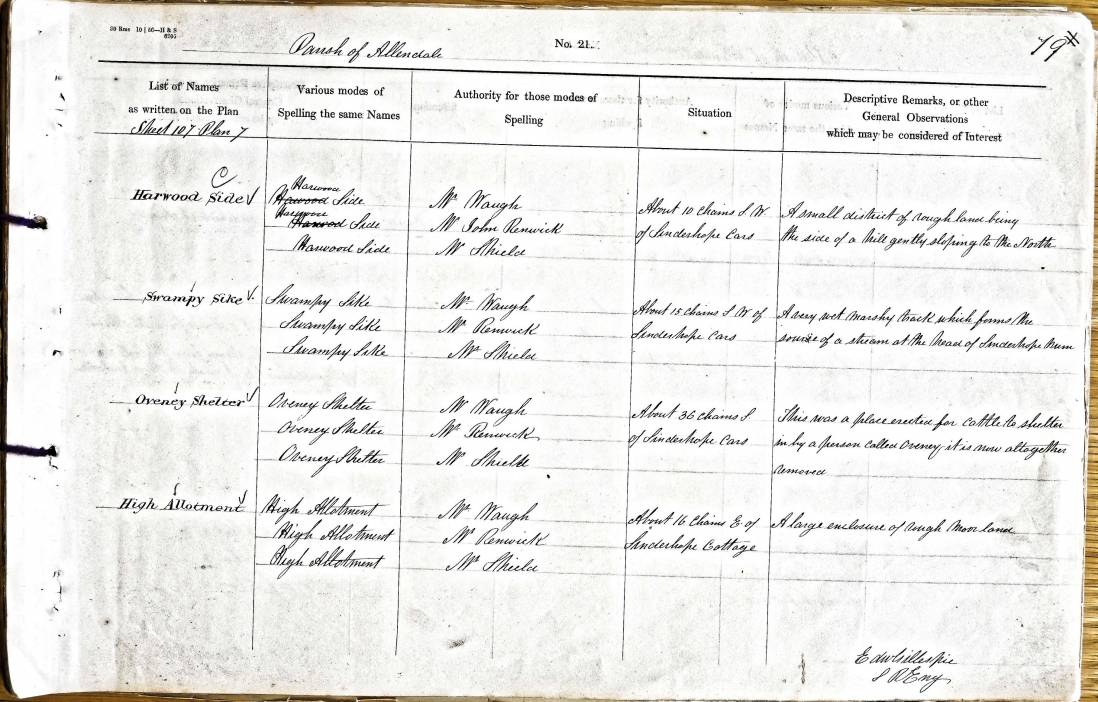 30 Rms 10 | 56—H & S
6705
Parish of Allendale
No. 21
79
List of Names
as written on the Plan
Various modes of
Spelling the same Names
Authority for those modes of
Spelling
Situation
Descriptive Remarks, or other
General Observations
which may be considered of Interest
Sheet 107 Plan 7
C
Harwood Side
Harwood
Harwood Side
Harwood
Harwood Side
Harwood Side
Mr Waugh
Mr John Renwick
Mr Shield
About 10 Chains S. W.
of Sinderhope Cars
A small district of rough land being
the side of a hill gently sloping to the North
Swampy Sike
Swampy Sike
Swampy Sike
Swampy Sike
Mr Waugh
Mr Renwick
Mr Shield
About 15 Chains S W of
Sinderhope Cars
A very wet marshy track which forms the
source of a stream at the head of Sinderhope Burn
Oveney Shelter
Oveney Shelter
Oveney Shelter
Oveney Shelter
Mr Waugh
Mr Renwick
Mr Shield
About 36 Chains S
of Sinderhope Cars
This was a place erected for Cattle to shelter
in by a person called Oveney, it is now altogether
removed
High Allotment
High Allotment
High Allotment
High Allotment
Mr Waugh
Mr Renwick
Mr Shield
About 16 Chains E of
Sinderhope Cottage
A large enclosure of rough Moorland
Edw Gillespie
S R Eng